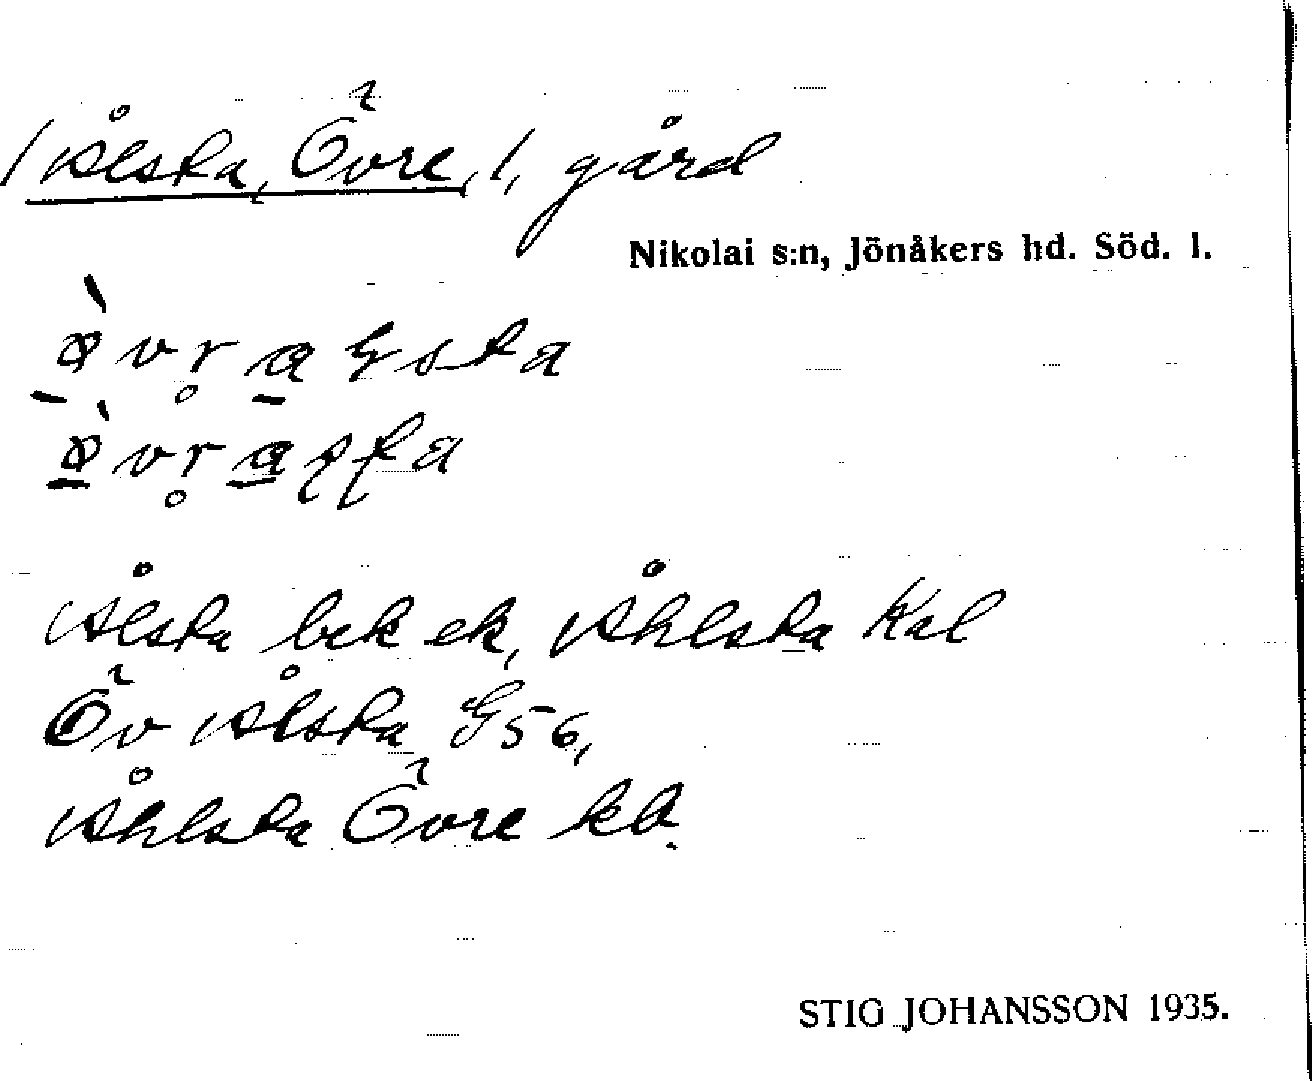 /Ålsta, Övre,/, gård
Nikolai s:n, Jönåkers hd. Söd. l.
Ålsta bek ek, Åhlsta Kal
Öv Ålsta G56,
Åhlsta Övre kb.
STIG JOHANSSON 1935.